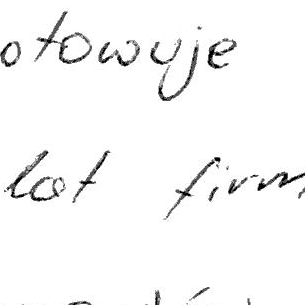 otowuje
lat firm